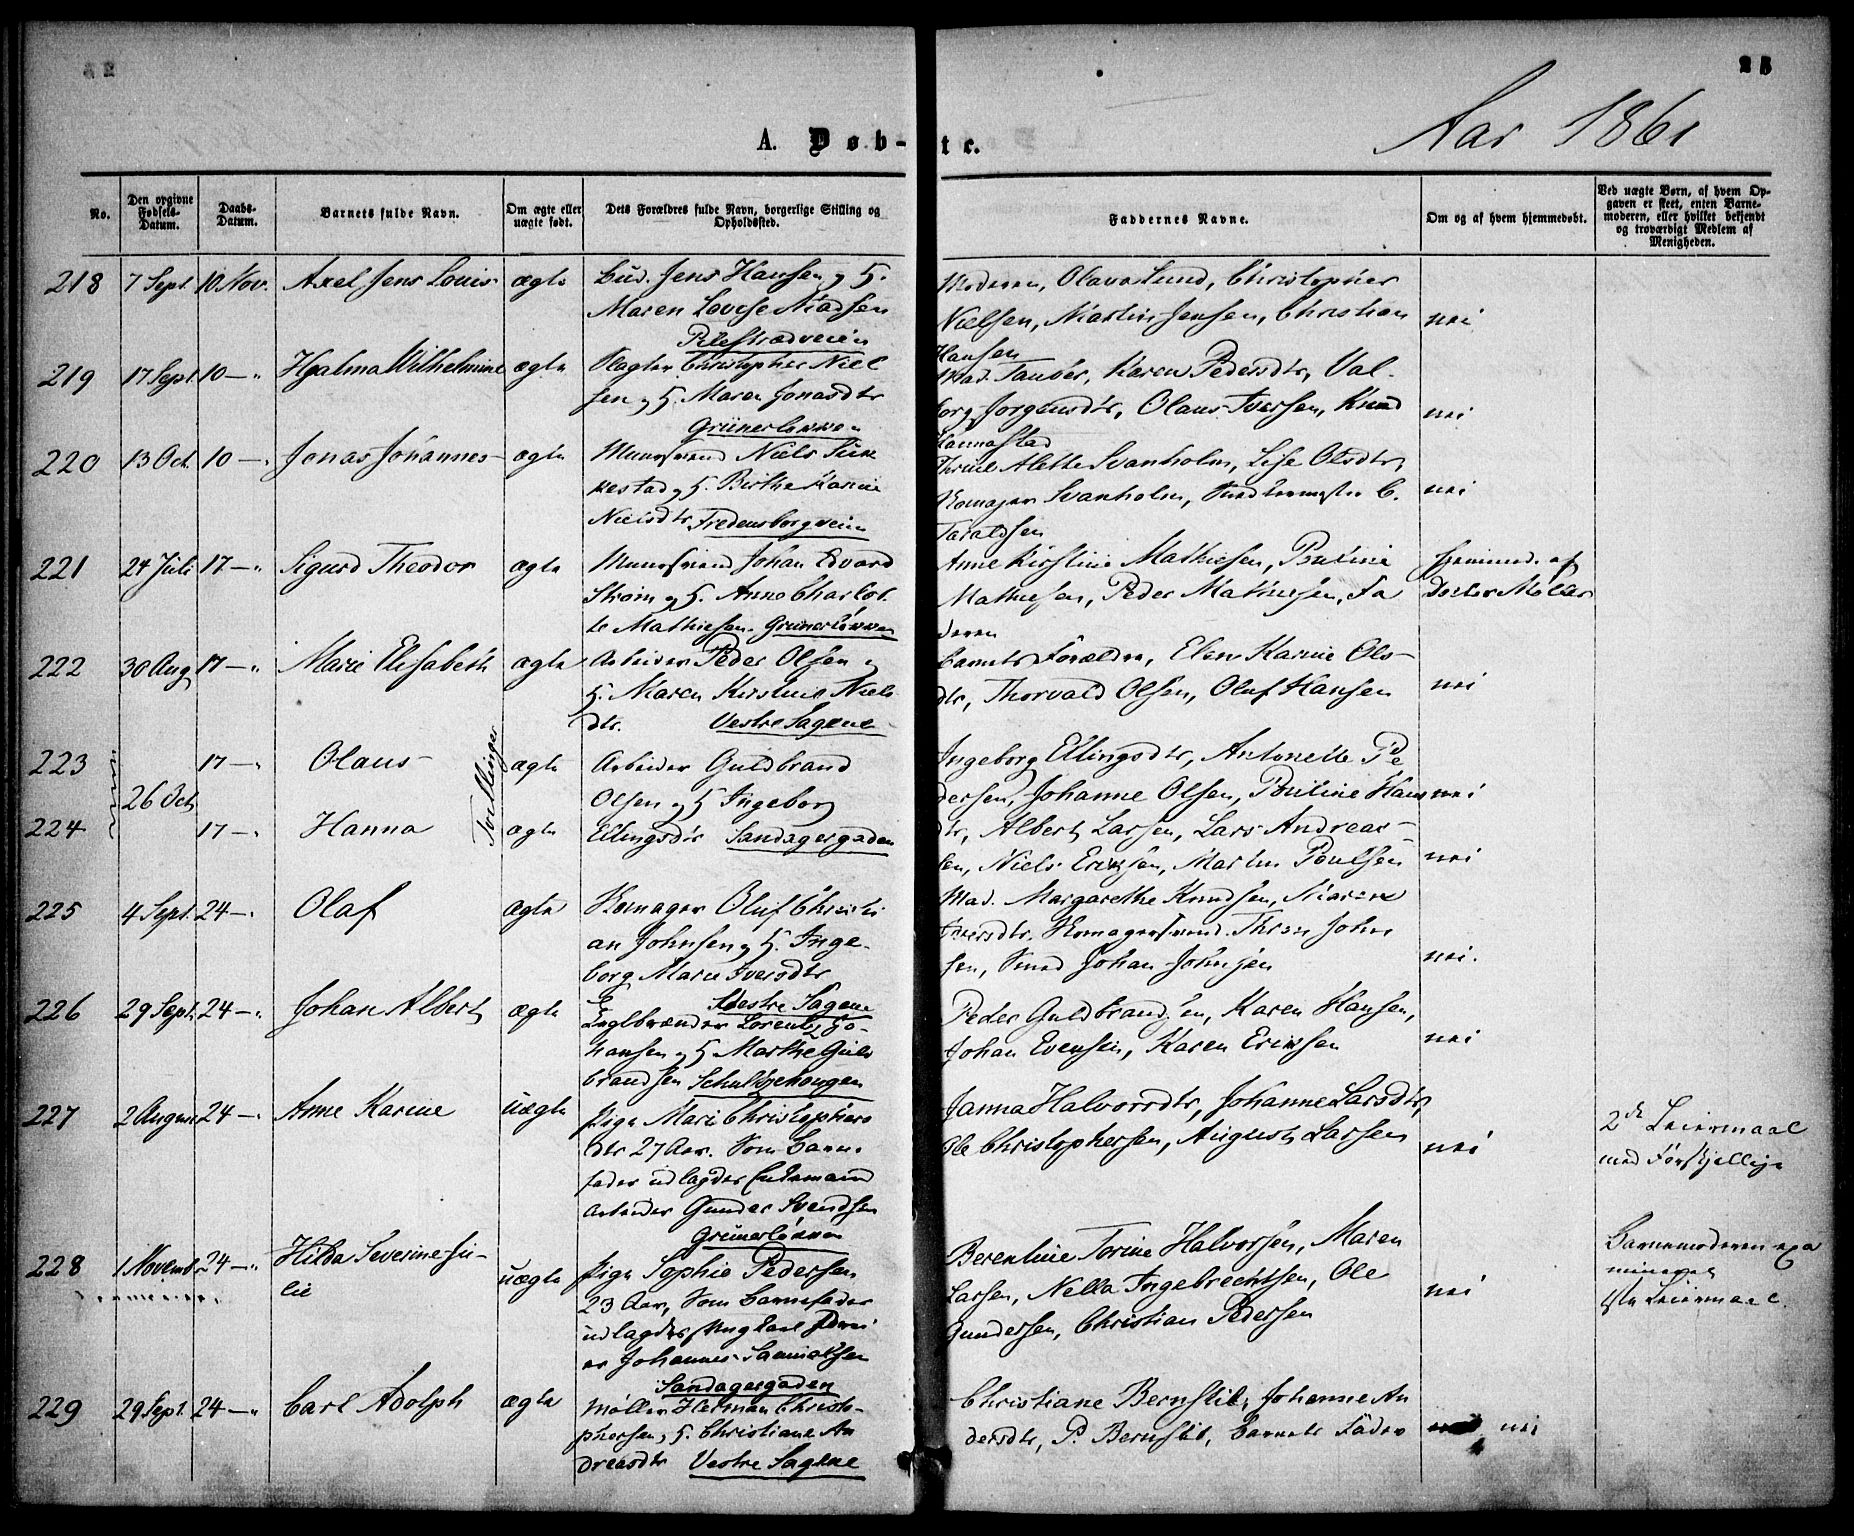 25
A. Døb-
te.
Aar 1861
No.
Den opgivne Fødsels-Datum.
Daabs-Datum.
Barnets fulde Navn.
Om ægte eller uægte født.
Dets Forældres fulde Navn, borgerlige Stilling og Opholdssted.
Faddernes Navne.
Om og af hvem hjemmedøbt.
Ved uægte Børn, af hvem Opgaven er skeet, enten Barnemoderen, eller hvilket bekjendt og troværdigt Medlem af Menigheden.
218 7 Sept. 10 Nov. Axel Jens Louis ægte Bud. Jens Hansen og H.
Maren Lovise Madsen
Pilestrædveien
Moderen, Olava Lund, Christopher
Nielsen, Martin Jensen, Christian nei
Hansen
219 17 Sept. 10 — " Hjalma Wilhelmine ægte Slagter Christopher Niel
sen og H. Maren Jonasdtr
Grünerløkken
Mad. Tauber, Karen Pedersdtr, Val-
borg Jørgensdtr, Olaus Iversen, Knud nei
Hannastad
220 13 Oct. 10 — " Jonas Johannes ægte Muursvend Niels Sik
kestad og H. Birthe Karine
Nielsdtr, Fredensborgveien
Thrine Alette Svanholm, Lise Olsdtr,
Skomager Svanholm, C. nei
Taraldsen
221 24 Juli 17 — " Sigurd Theodor ægte Muursvend Johan Edvard
Strøm og H. Anne Charlot
te Mathiesen. Grünerløkken
Anne Kirstine Mathiesen, Pauline
Mathiesen, Peder Mathiesen, Fa
deren
hjemmed. af
Doctor Møller
222 30 Aug 17 — " Marie Elisabeth ægte Arbeider Peder Olsen og
H. Maren Kirstine Niels
dtr. Vestre Sagene
Barnets Forældre, Elen Karine Ols-
dtr, Thorvald Olsen, Oluf Hansen nei
223 17 — " Olaus ægte Arbeider Guldbrand
26 Oct Tvillinger
Olsen og H Ingeborg
224 17 — " Hanna ægte Ellingsdtr Sandagergaden
Ingeborg Ellingsdtr, Antonette Pe
dersen, Johanne Olsen, Pauline Hans nei
dtr, Albert Larsen, Lars Andreas-
sen, Niels Eriksen, Martin Poulsen nei
225 4 Sept. 24 — " Olaf ægte Skomager Oluf Christi
an Johnsen og H. Inge-
borg Marie Iversdtr
Vestre Sagene
Mad. Margarethe Knudsen, Maren
Iversdtr. Skomagersvend. Thron John
sen, Smed Johan Johnsen nei.
226 29 Sept. 24 — " Johan Albert ægte Teglbrænder Lorentz Jo-
hansen og H Marthe Gul
brandsen Schultzehaugen
Peder Guldbrandsen, Karen Hansen,
Johan Evensen, Karen Eriksen nei
227 2 August 24 — " Anne Karine uægte Pige Mari Christophers
dtr 27 Aar. Som Barne
fader udlagdes Enkemand
Arbeider Gunder Svendsen
Grünerløkken
Janna Halvorsdtr, Johanne Larsdtr,
Ole Christophersen, August Larsen nei
2det Leiermaal
med Forskjellige
228 1 Novembr 24 — " Hilda Severine Ju-
lie
uægte Pige Sophie Pedersen
23 Aar, Som Barnefader
udlagdes Ungkarl Arbei
er Johannes Samuelsen
Sandagergaden
Berentine Torine Halvorsen, Maren
Larsen, Nella Ingebrechtsen, Ole nei
Gundersen, Christian Pedersen
Barnemoderen exa
mineret
1ste Leiermaal.
229 29 Sept. 24 — " Carl Adolph ægte Møller Herman Christo-
phersen og H. Christiane An
dreasdtr Vestre Sagene
Christiane Bernslid, Johanne An
dersdtr, P. Bernslid, Barnets Fader nei